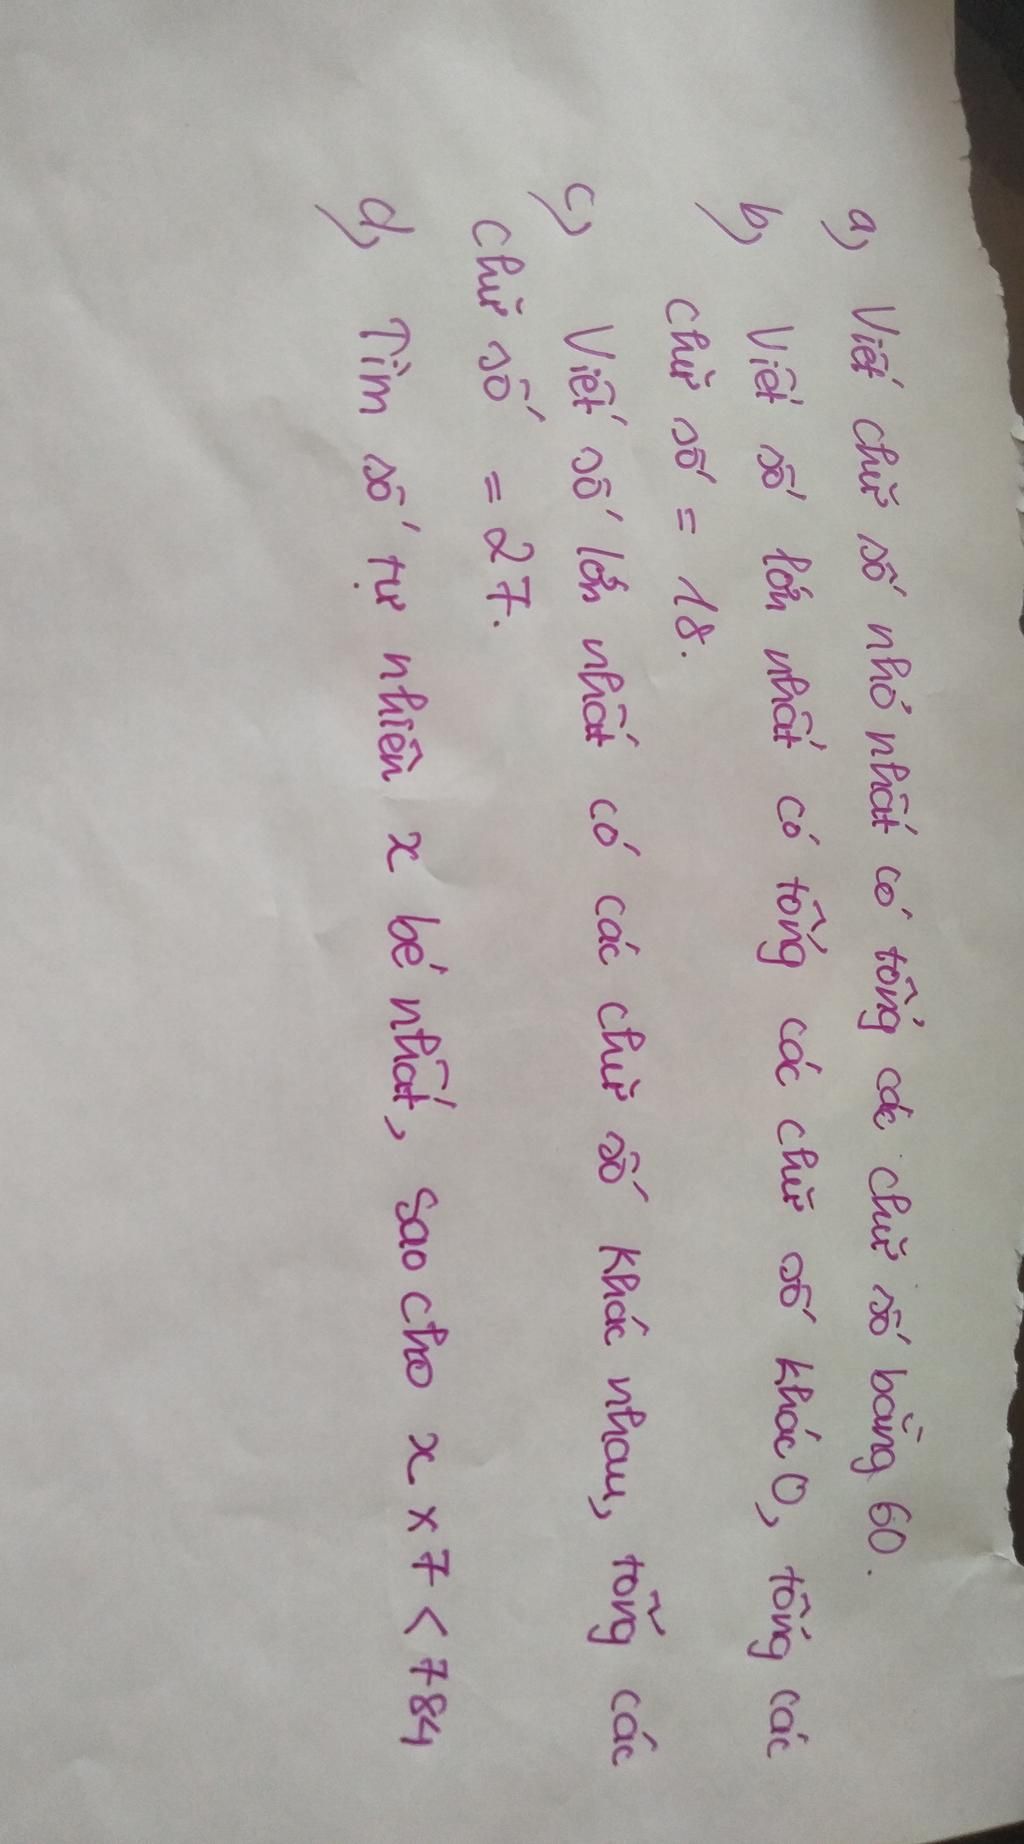 a) Viết chữ số nhỏ nhất có tổng các chữ số bằng 60.
b) Viết số lớn nhất có tổng các chữ số khác 0, tổng các
chữ số = 18.
c) Viết số lớn nhất có các chữ số khác nhau, tổng các
chữ số = 27.
d) Tìm số tự nhiên x bé nhất, sao cho x × 7 < 784